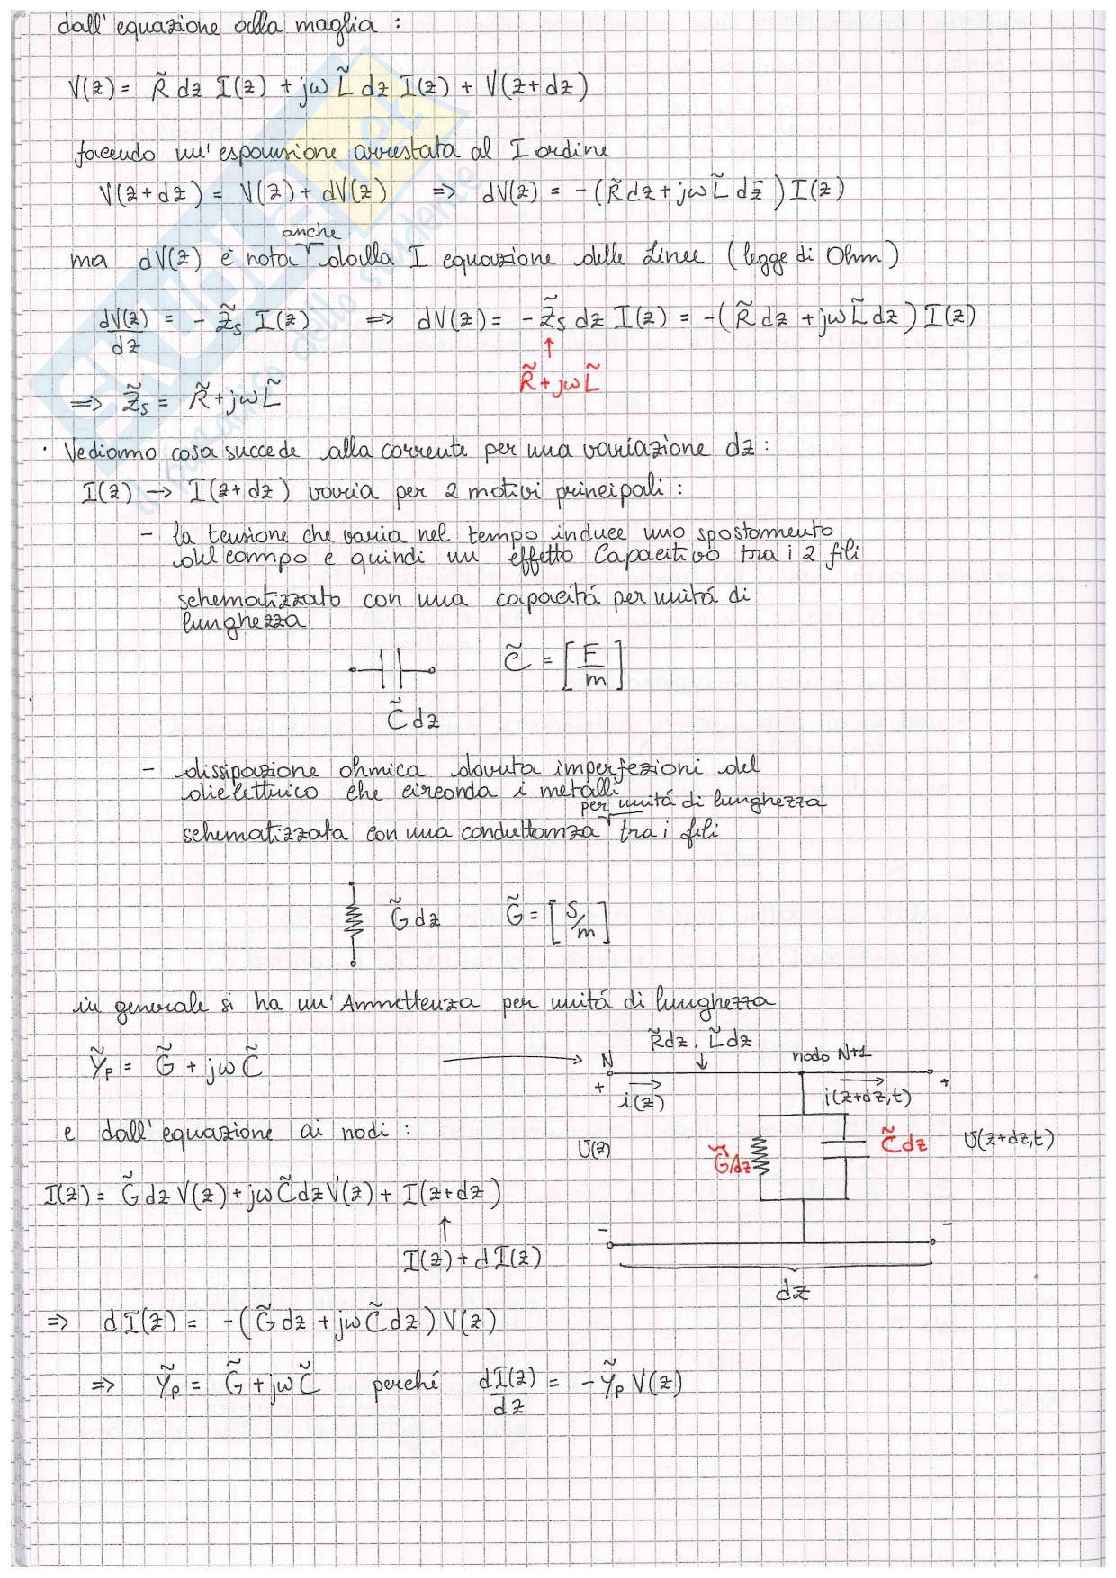 dall'equazione alla maglia :
V(z) = R̃ dz I(z) + jω L̃ dz I(z) + V(z+dz)
facendo un'espansione arrestata al I ordine
V(z+dz) = V(z) + dV(z) ⇒ dV(z) = -(R̃ dz + jω L̃ dz) I(z)
anche
ma dV(z) è nota dalla I equazione delle Linee (legge di Ohm)
dV(z)/dz = - Z̃s I(z) ⇒ dV(z) = - Z̃s dz I(z) = -(R̃ dz + jω L̃ dz) I(z)
↑
R̃ + jω L̃
⇒ Z̃s = R̃ + jω L̃
· Vediamo cosa succede alla corrente per una variazione dz :
I(z) → I(z+dz) varia per 2 motivi principali :
- la tensione che varia nel tempo induce uno spostamento
del campo e quindi un effetto Capacitivo tra i 2 fili
schematizzato con una capacitá per unitá di
lunghezza
C̃ = [F/m]
C̃ dz
- dissipazione ohmica dovuta imperfezioni del
dielettrico che circonda i metalli
per unitá di lunghezza
schematizzata con una conduttanza tra i fili
G̃ dz G̃ = [S/m]
in generale si ha un'Ammettenza per unitá di lunghezza
Ỹp = G̃ + jω C̃
R̃dz, L̃dz
N
nodo N+1
+ i(z) i(z+dz,t) +
e dall'equazione ai nodi :
U(z) G̃dz C̃dz U(z+dz,t)
I(z) = G̃ dz V(z) + jω C̃ dz V(z) + I(z+dz)
↑
I(z) + dI(z)
- -
dz
⇒ dI(z) = -(G̃ dz + jω C̃ dz) V(z)
⇒ Ỹp = G̃ + jω C̃ perché dI(z)/dz = - Ỹp V(z)